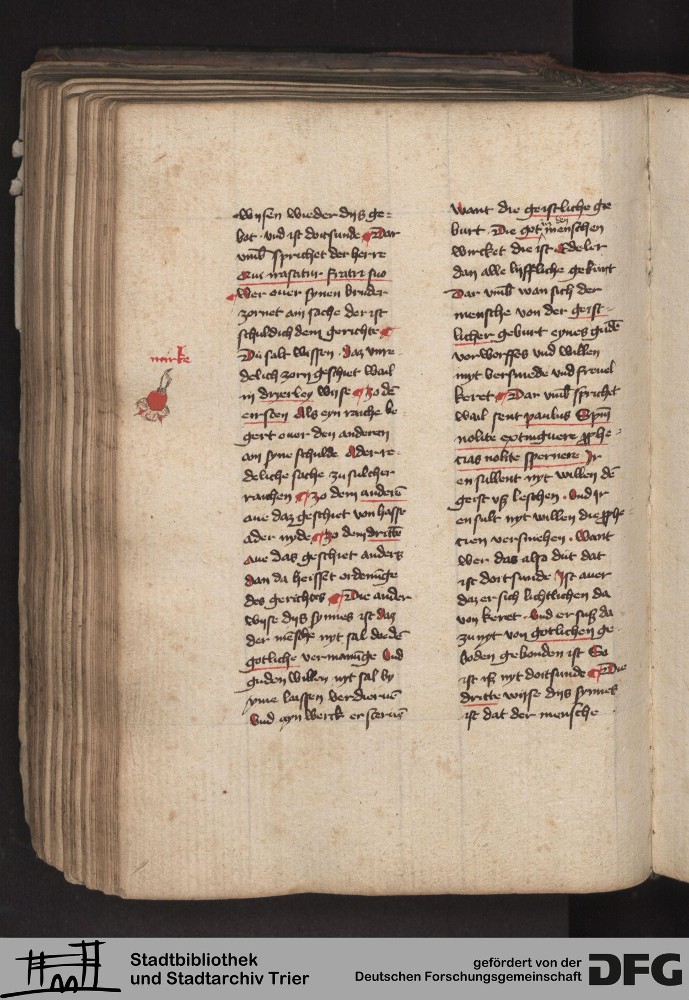 wijsen wieder dijs ge=
bot · vnd ist doitsunde Dar
vmb sprichet der herre
Qui irascitur fratri suo
Wer ouer synen bruder
zornet ain sache der ist
schuldich dem gerichte
Du salt wissen · Daz vnre
delich zorn geschiet wail
in dryerley wijse zo dē
eirsten Als eyn raiche be
gert ouer den anderen
ain syne schulde Ader re
deliche sache zu sulcher
raichen zo dem anderē
aue daz geschiet von hasse
ader nyde zo dem dritte
Aue das geschiet anders
dan da heisset ordenūge
des gerichtes Die ander
wijse dijs synnes ist daz
der mēsche nyt sal doedē
gotliche vermanūge Vnd
guden willen nyt sal by
yme laissen verdieruē
Vnd ayn werck ersteruē
marke
want die geistliche ge
burt · Die got in den menschen
wircket die ist Edeler
dan alle lyffliche geburt
Dar vmb wan sich der
mensche von der geist=
licher geburt eynes gudē
vorworffes vnd willen
myt versmede vnd freuel
keret Dar vmb sprichet
wail sent paulus Spm̄
nolite extinguere ꝓphe=
cias nolite spernere Ir
en sullent nyt willen dē
geist vß leschen · Vnd ir
en sult nyt willen die ꝓphe
cien versmehen · Want
wer das also dut dat
ist doitsunde Ist auer
daz er sich lichtlichen da
von keret · Vnd er suß da
zu nyt von gotlichen ge
boden gebonden ist So
ist iß nyt doitsunde Die
dritte wijse dijs synnes
ist dat der mensche
Stadtbibliothek
und Stadtarchiv Trier
gefördert von der
Deutschen Forschungsgemeinschaft
DFG